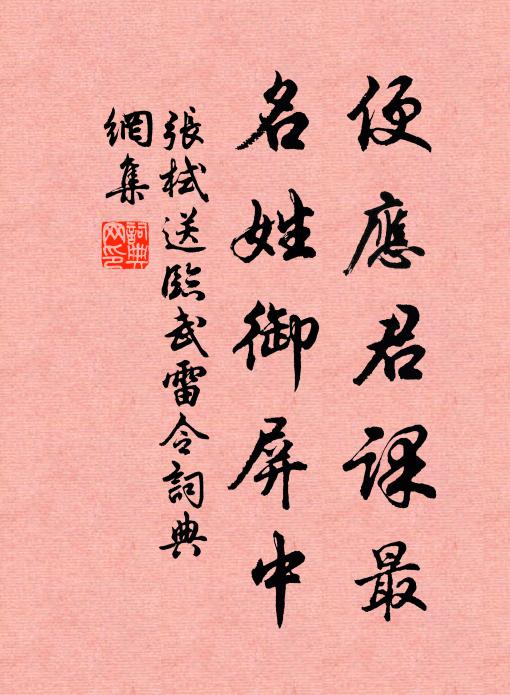 便應君課最
名姓御屏中
張栻送臨武雷令詞典
網集
詞典
网印